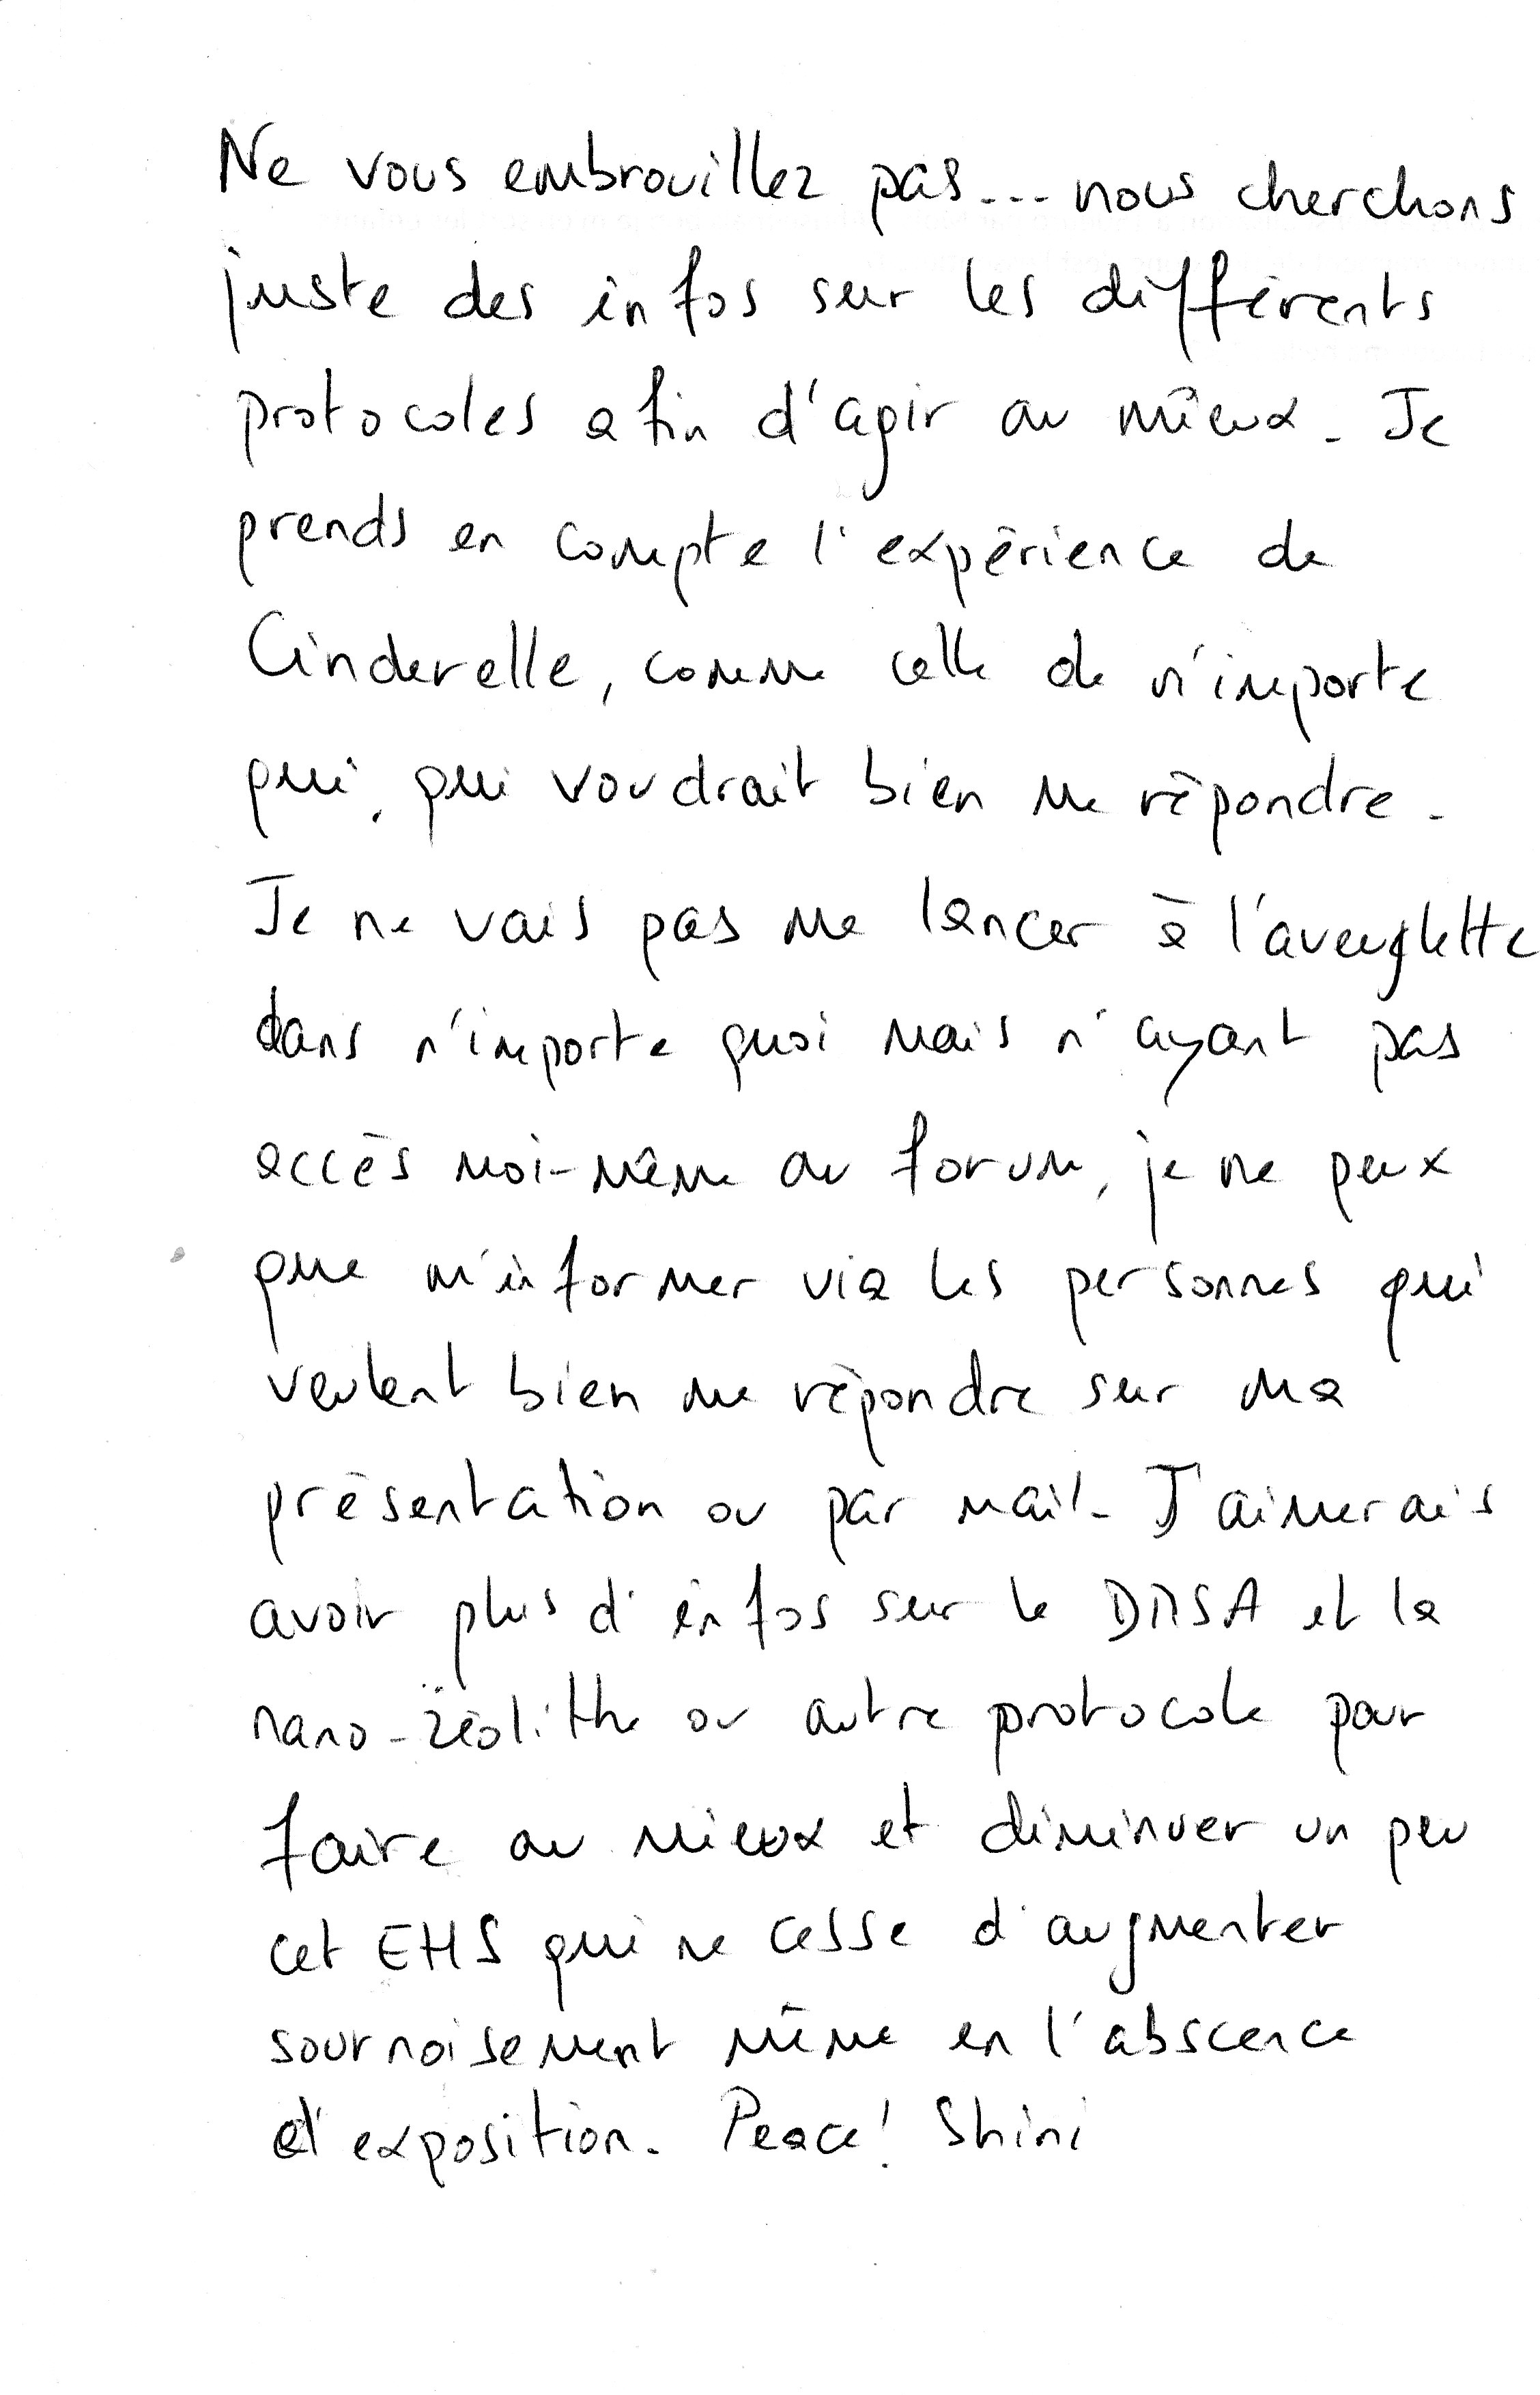 Ne vous embrouillez pas... nous cherchons
juste des infos sur les différents
protocoles afin d'agir au mieux. Je
prends en compte l'expérience de
Cinderelle, comme celle de n'importe
qui, qui voudrait bien me répondre.
Je ne vais pas me lancer à l'aveuglette
dans n'importe quoi mais n'ayant pas
accès moi-même au forum, je ne peux
que m'informer via les personnes qui
veulent bien me répondre sur ma
présentation ou par mail. J'aimerais
avoir plus d'infos sur le DMSA et la
nano-zéolithe ou autre protocole pour
faire au mieux et diminuer un peu
cet EHS qui ne cesse d'augmenter
sournoisement même en l'abscence
d'exposition. Peace! Shini